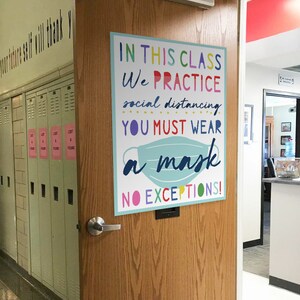 self it will teach
IN THIS CLASS
We PRACTICE
social distancing
YOU MUST WEAR
a mask
NO EXCEPTIONS!